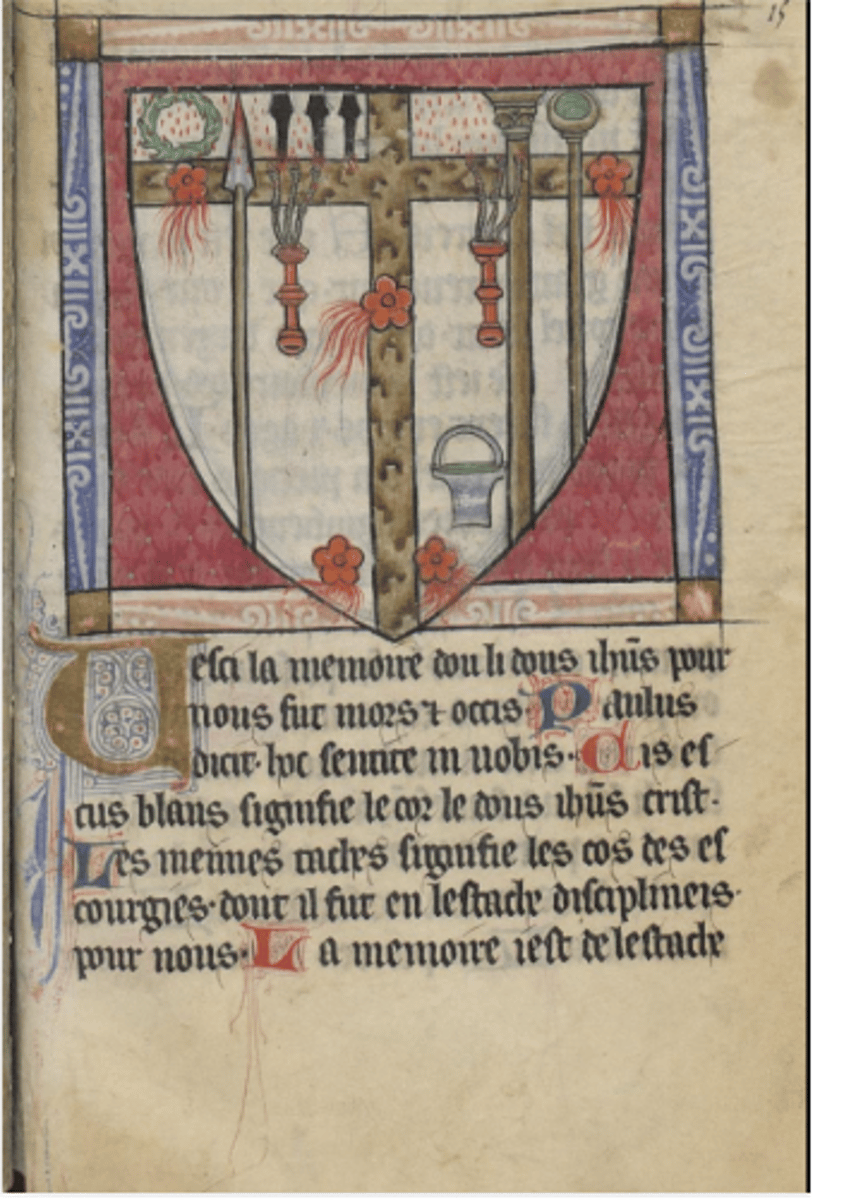 15
Vesci la memoire dou li dous ihūs pour
nous fut mors ⁊ occis. Paulus
dicit. hoc sentite in uobis. Cis es
cus blans signifie le cor le dous ihūs crist.
Les menues taches signifie les cos des es
courgies. dont il fut en lestache disciplineis.
pour nous. La memoire iest de lestache